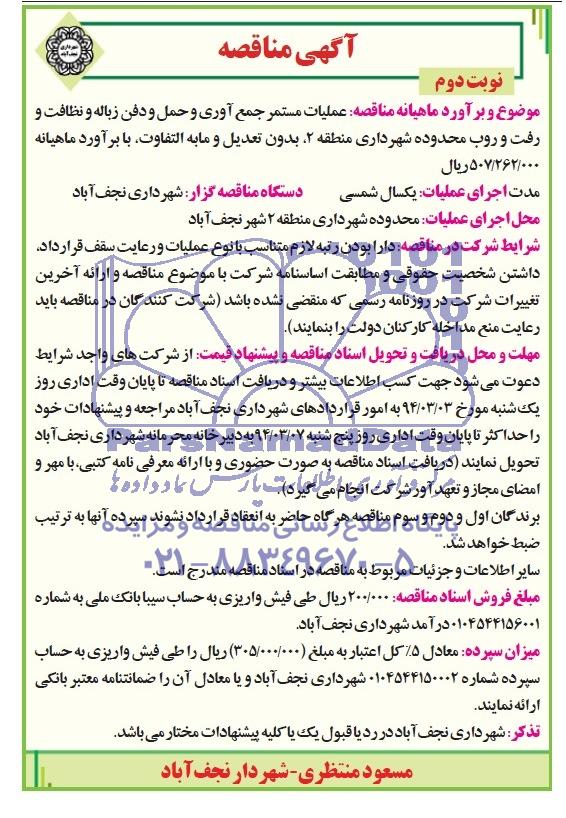 شهرداری
نجف آباد
آگهی مناقصه
نوبت دوم
موضوع و برآورد ماهیانه مناقصه: عملیات مستمر جمع آوری و حمل و دفن زباله و نظافت و
رفت و روب محدوده شهرداری منطقه ۲، بدون تعدیل و مابه التفاوت، با برآورد ماهیانه
۵۰۷/۲۶۲/۰۰۰ ریال
مدت اجرای عملیات: یکسال شمسی دستگاه مناقصه گزار: شهرداری نجف آباد
محل اجرای عملیات: محدوده شهرداری منطقه ۲ شهر نجف آباد
شرایط شرکت در مناقصه: دارا بودن رتبه لازم متناسب با نوع عملیات و رعایت سقف قرارداد،
داشتن شخصیت حقوقی و مطابقت اساسنامه شرکت با موضوع مناقصه و ارائه آخرین
تغییرات شرکت در روزنامه رسمی که منقضی نشده باشد (شرکت کنندگان در مناقصه باید
رعایت منع مداخله کارکنان دولت را بنمایند).
مهلت و محل دریافت و تحویل اسناد مناقصه و پیشنهاد قیمت: از شرکت های واجد شرایط
دعوت می شود جهت کسب اطلاعات بیشتر و دریافت اسناد مناقصه تا پایان وقت اداری روز
یک شنبه مورخ ۹۴/۰۳/۰۳ به امور قراردادهای شهرداری نجف آباد مراجعه و پیشنهادات خود
را حداکثر تا پایان وقت اداری روز پنج شنبه ۹۴/۰۳/۰۷ به دبیرخانه محرمانه شهرداری نجف آباد
تحویل نمایند (دریافت اسناد مناقصه به صورت حضوری و با ارائه معرفی نامه کتبی، با مهر و
امضای مجاز و تعهدآور شرکت انجام می گیرد).
برندگان اول و دوم و سوم مناقصه هرگاه حاضر به انعقاد قرارداد نشوند سپرده آنها به ترتیب
ضبط خواهد شد.
سایر اطلاعات و جزئیات مربوط به مناقصه در اسناد مناقصه مندرج است.
مبلغ فروش اسناد مناقصه: ۲۰۰/۰۰۰ ریال طی فیش واریزی به حساب سیبا بانک ملی به شماره
۰۱۰۴۵۴۴۱۵۶۰۰۱ درآمد شهرداری نجف آباد.
میزان سپرده: معادل ۵٪ کل اعتبار به مبلغ (۳۰۵/۰۰۰/۰۰۰) ریال را طی فیش واریزی به حساب
سپرده شماره ۰۱۰۴۵۴۴۱۵۰۰۰۲ شهرداری نجف آباد و یا معادل آن را ضمانتنامه معتبر بانکی
ارائه نمایند.
تذکر: شهرداری نجف آباد در رد یا قبول یک یا کلیه پیشنهادات مختار می باشد.
مسعود منتظری-شهردار نجف آباد
ParsNamadData
مرکز فرآوری اطلاعات پارس نماد داده ها
پایگاه اطلاع رسانی مناقصه و مزایده
۰۲۱-۸۸۳۴۹۶۷۰-۵